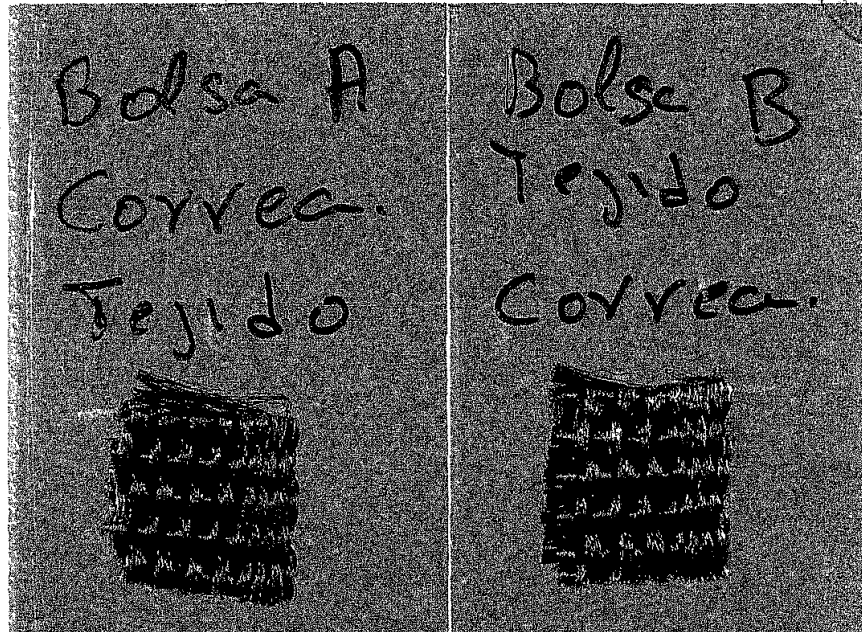 Bolsa A
Correa.
Tejido
Bolse B
Tejido
Correa.